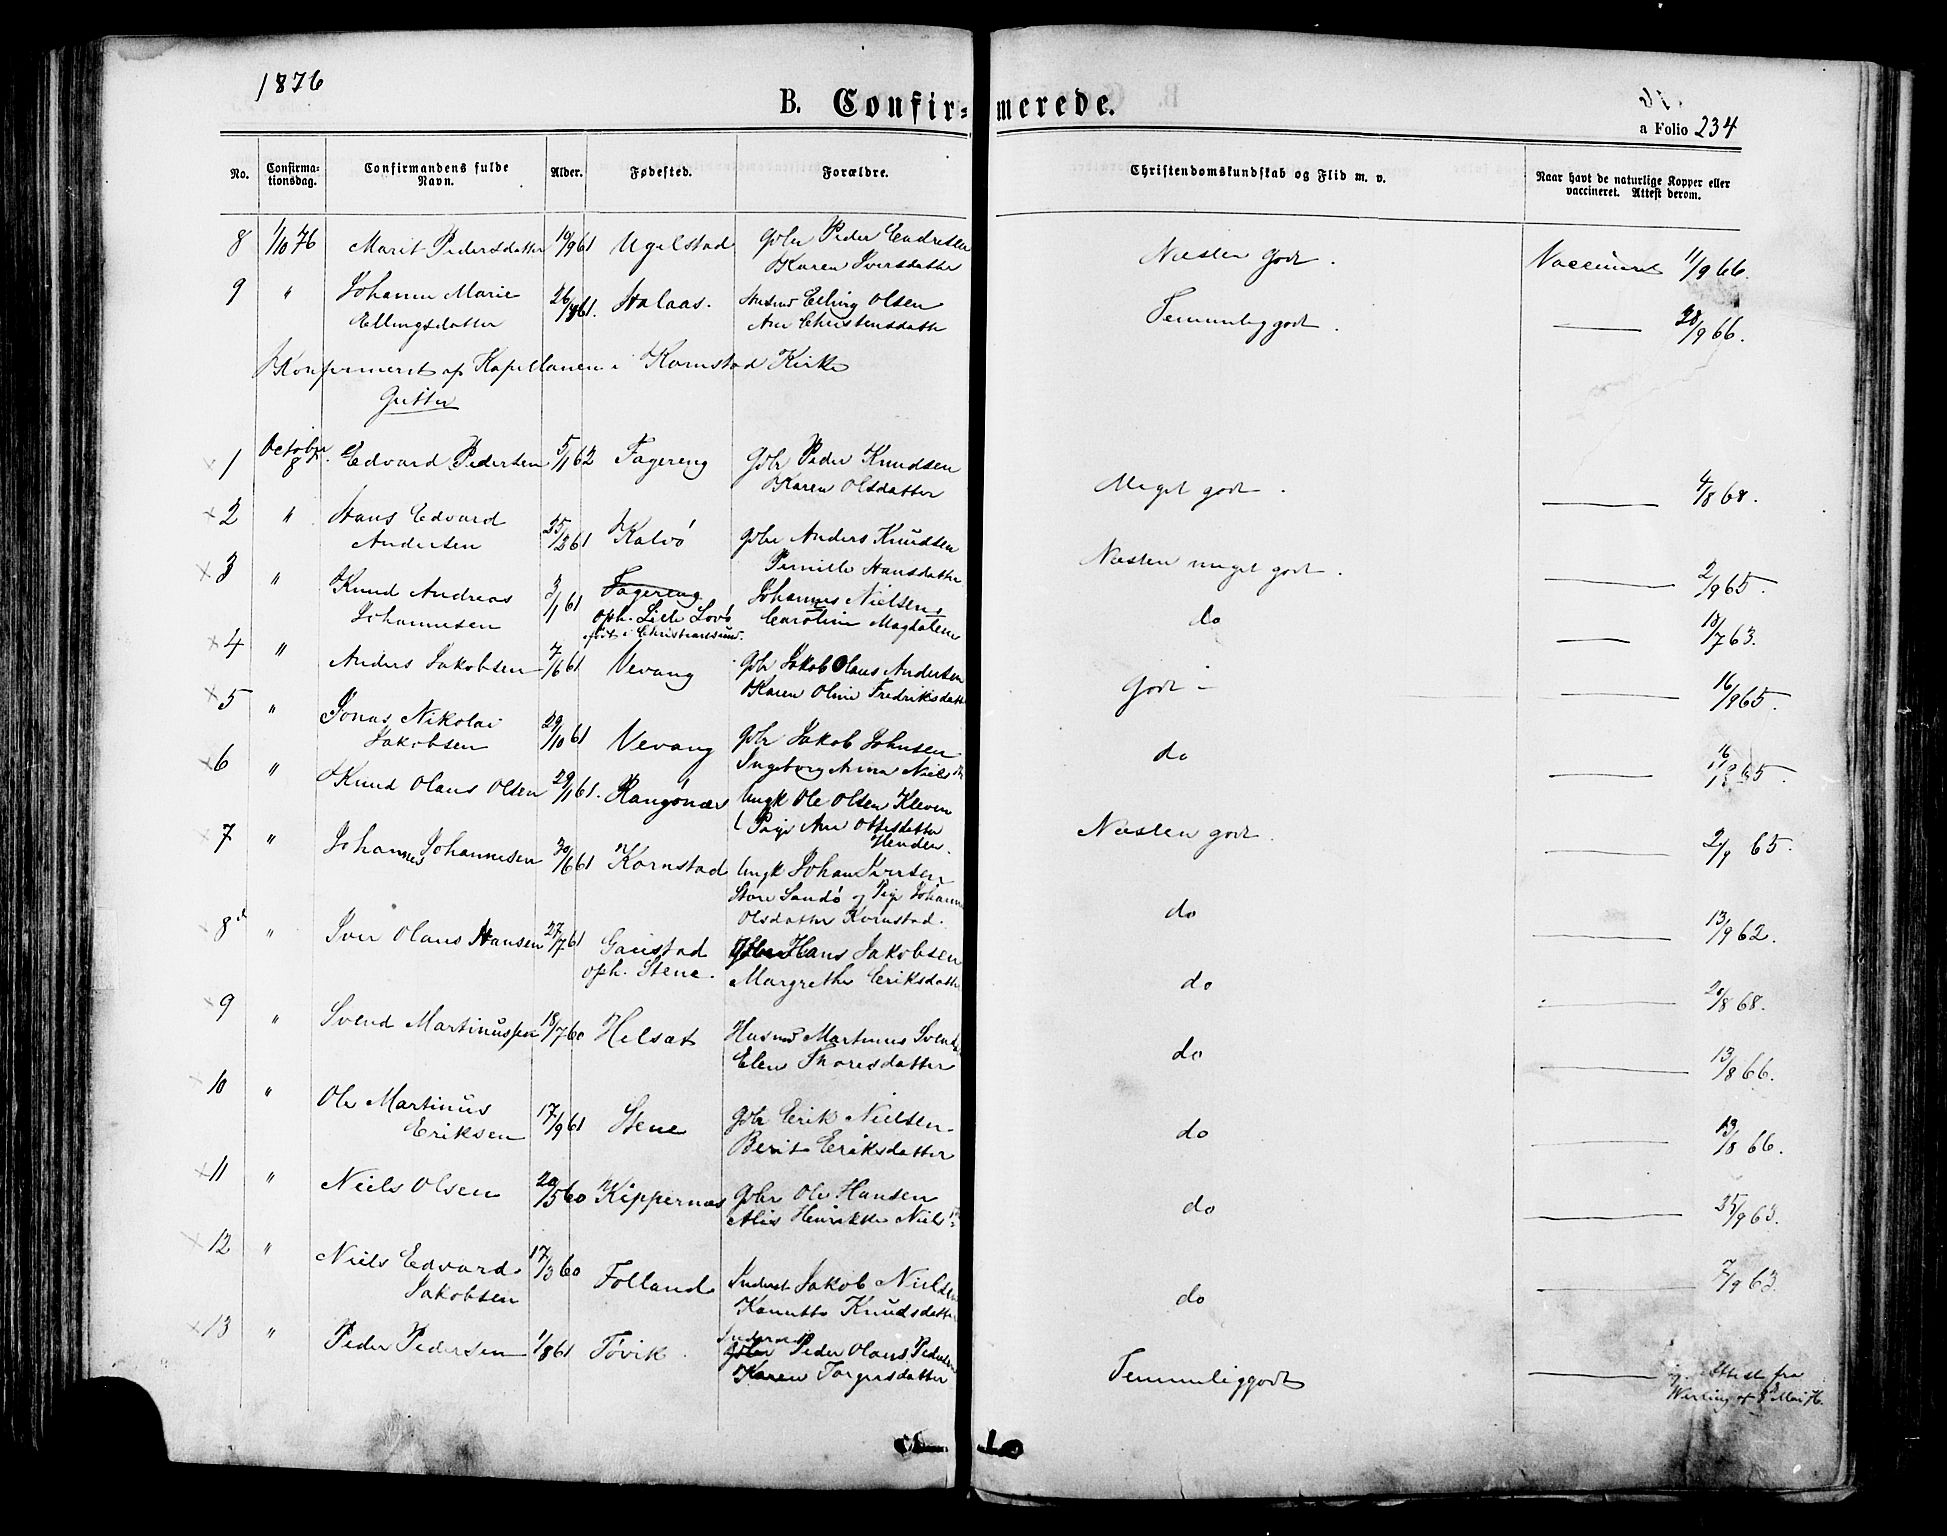 1876
B. Confirmerede.
a Folio 234
No. Confirmationsdag. Confirmandens fulde Navn. Alder. Fødested. Forældre. Christendomskundskab og Flid m. v. Naar havt de naturlige Kopper eller vaccineret. Attest derom.
8 1/10 76 Marit Pedersdatter 19/9 61 Ugelstad Gbr Peder Endresen Næsten godt. Vaccineret 11/9 66.
Karen Iversdatter
9 " Johanne Marie 26/8 61. Halaas. Husmd Elling Olsen Temmeliggodt. — 28/9 66.
Ellingsdatter Ane Christensdatter
Konfirmeret af Kapellanen i Kornstad Kirke
Gutter
1 October 8 Edvard Pedersen 5/1 62 Fagereng Gbr Peder Knudsen Meget godt. — 4/8 68.
Karen Olsdatter
2 " Hans Edvard 25/3 61 Kalvø Gbr Anders Knudsen Næsten meget godt. — 2/9 65.
Andersen Pernille Hansdatter
3 " Knud Andreas 3/1 61 Fagereng Johannes Nielsen do — 18/7 63.
Johannesen oph. Lille Lovø Caroline Magdalene
født i Christiansund.
4 " Anders Jakobsen 7/6 61 Vevang Gbr Jakob Olaus Andersen Godt — 16/9 65.
Karen Oline Fredriksdatt
5 " Jonas Nikolai 29/10 61 Vevang Gbr Jakob Johnsen do — 16/9 65.
Jakobsen Ingeborg Anna Niels dtr
6 " Knud Olaus Olsen 29/1 61. Rangønæs Ungk Ole Olsen Kleven Næsten godt. — 2/9 65.
Pige Ane Ottesdatter
Henden.
7 " Johannes Johannesen 30/6 61 Kornstad Ungk Johan Iversen do — 13/9 62.
Store Sandø og Pige Johanne
Olsdatter Kornstad.
8 " Iver Olaus Hansen 27/7 61 Gaustad Gbr Hans Jakobsen do — 20/8 68.
oph. Stene. Margrethe Eriksdatt
9 " Svend Martinussen 18/7 60 Helsæt Husmd Martinus Svends do — 13/8 66.
Elen Thoresdatter
10 " Ole Martinus 17/9 61 Stene Gbr Erik Nielsen do — 13/8 66.
Eriksen Berit Eriksdatter
11 " Niels Olsen 20/5 60 Kippernæs Gbr Ole Hansen do — 25/9 63.
Alis Henrikke Niels dtr
12 " Niels Edvard 17/3 60 Folland Inderst Jakob Nielsen do — 7/9 63
Jakobsen Kanutte Knudsdatter
13 " Peder Pedersen 1/8 61 Tøvik Gbr Peder Olaus Pedersen Temmeliggodt — Attest fra
Karen Torgersdatter